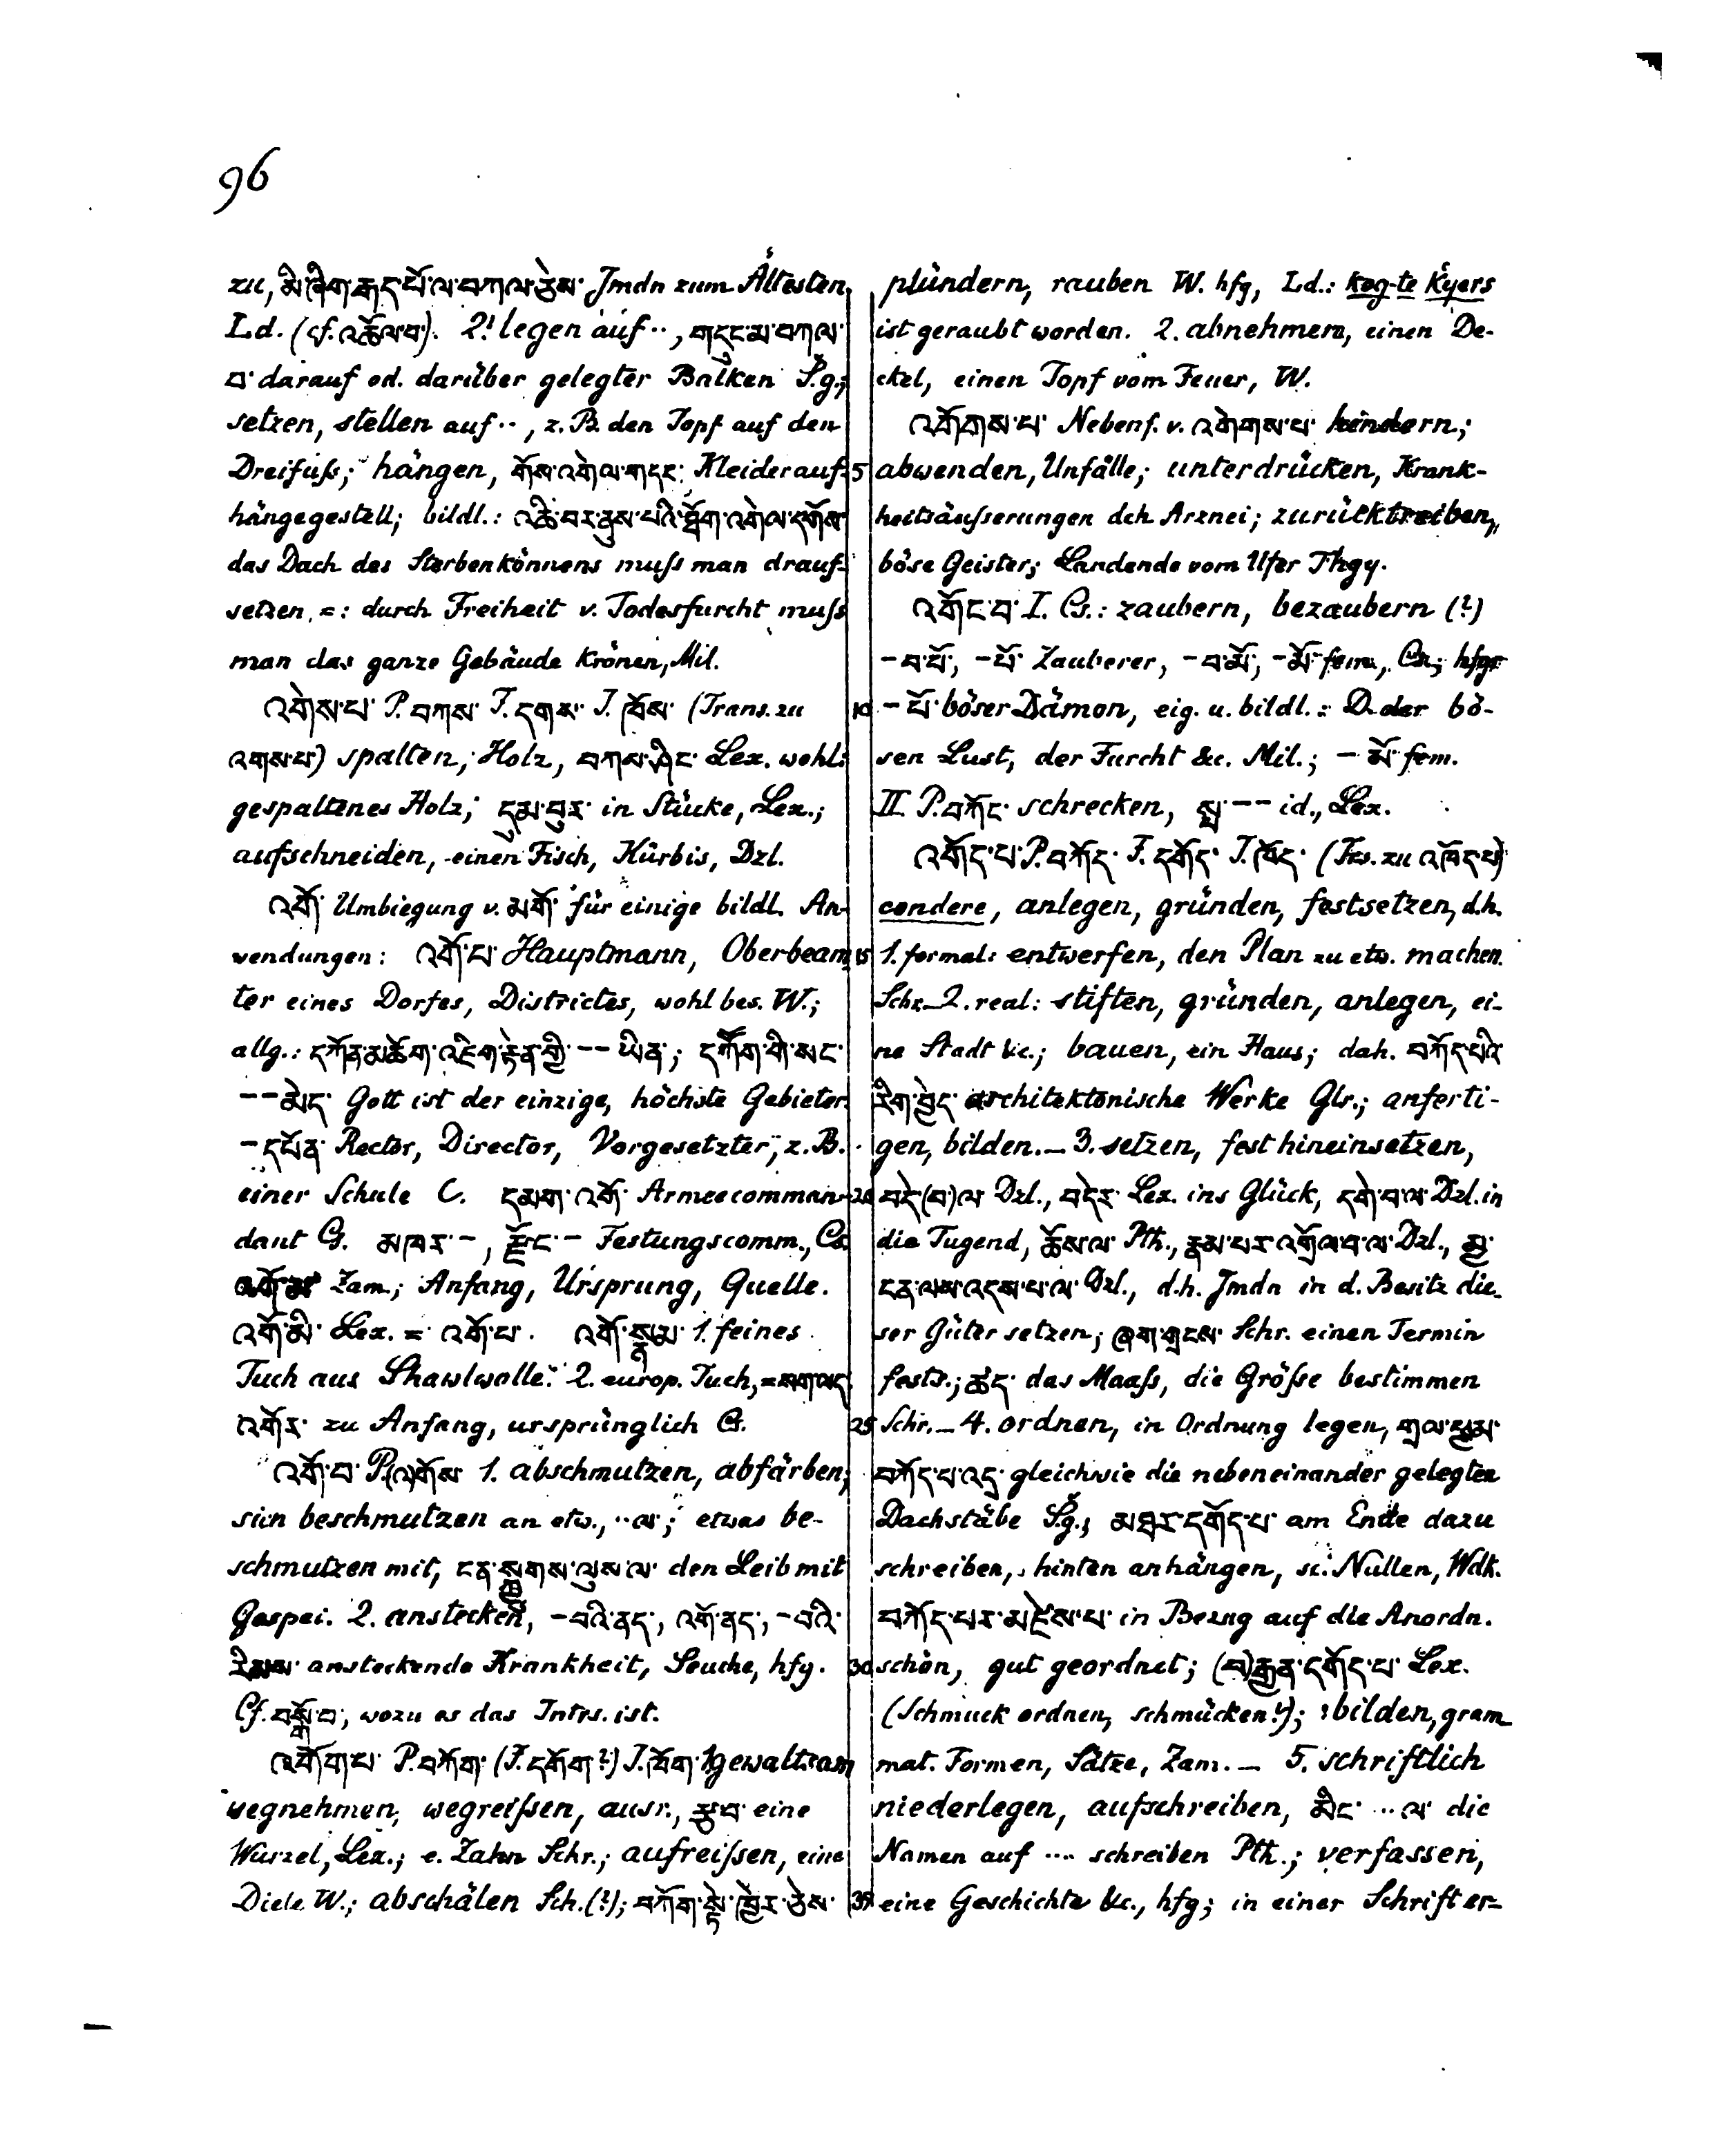 96
zu, མི་ཞིག་རྒད་པོ་ལ་བཀལ་ཅེས་ Jmdn zum Ältesten,
Ld. (cf. འཆོལ་བ་). 2. legen auf··, གདུང་མ་བཀལ་
བ་ darauf od. darüber gelegter Balken S.g.;
setzen, stellen auf··, z.B. den Topf auf den
Dreifuß; hängen, གོས་འགེལ་གདང་ Kleiderauf-
hängegestell; bildl.: འཆི་བར་ནུས་པའི་ཐོག་འགེལ་དགོས་
das Dach des Sterbenkönnens muß man drauf-
setzen, =: durch Freiheit v. Todesfurcht muß
man das ganze Gebäude krönen, Mil.
འགེས་པ་ P. བཀས་ F. དགས་ J. ཁོས་ (Trans. zu
འགས་པ་) spalten, Holz, བཀས་ཤིང་ Lex. wohl:
gespaltenes Holz; དུམ་བུར་ in Stücke, Lex.;
aufschneiden, einen Fisch, Kürbis, Dzl.
འགོ་ Umbiegung v. མགོ་ für einige bildl. An-
wendungen: འགོ་པ་ Hauptmann, Oberbeam-
ter eines Dorfes, Districtes, wohl bes. W.;
allg.: དཀོན་མཆོག་འཇིག་རྟེན་གྱི་ -- ཡིན་; དཀོག་གི་སང་
--མེད་ Gott ist der einzige, höchste Gebieter.
-དཔོན་ Rector, Director, Vorgesetzter, z.B.
einer Schule C. དམག་འགོ་ Armeecomman-
dant Cs. མཁར་-, རྫོང་- Festungscomm., Cs.
Zam.; Anfang, Ursprung, Quelle.
འགོ་མི་ Lex. = འགོ་པ་. འགོ་སྣམ་ 1. feines
Tuch aus Shawlwolle. 2. europ. Tuch, = སག་ལད་
འགོར་ zu Anfang, ursprünglich Cs.
འགོ་བ་ P. (འ)གོས་ 1. abschmutzen, abfärben;
sich beschmutzen an etw., ··ལ་; etwas be-
schmutzen mit, ངན་སྐྱུགས་ལུས་ལ་ den Leib mit
Gespei. 2. anstecken, -བའི་ནད་, འགོ་ནད་, -བའི་
རིམས་ ansteckende Krankheit, Seuche, hfg.
Cf. བསྒོ་བ་, wozu es das Intrs. ist.
འགོག་པ་ P. བཀོག་ (F. དགོག་?) J. ཁོག་ 1. gewaltsam
wegnehmen, wegreißen, ausr., རྩ་བ་ eine
Wurzel, Lex.; e. Zahn Schr.; aufreissen, eine
Diele W.; abschälen Sch. (?); བཀོག་སྟེ་ཁྱེར་ཅེས་
plündern, rauben W. hfg, Ld.: kog-te kyers
ist geraubt worden. 2. abnehmen, einen De-
ckel, einen Topf vom Feuer, W.
འགོགས་པ་ Nebenf. v. འགེགས་པ་ hindern;
abwenden, Unfälle; unterdrücken, Krank-
heitsäusserungen dch Arznei; zurücktreiben,
böse Geister; Landende vom Ufer Thgy.
འགོང་བ་ I. Cs.: zaubern, bezaubern (?)
-བ་པོ་, -པོ་ Zauberer, -བ་མོ་, -མོ་ fem, Cs.; hfgr
-པོ་ böser Dämon, eig. u. bildl.: D. der bö-
sen Lust, der Furcht &c. Mil.; -མོ་ fem.
II. P. བཀོང་ schrecken, སྤ་ -- id., Lex.
འགོད་པ་ P. བཀོད་ F. དགོད་ J. ཁོད་ (Trs. zu འཁོད་པ་)
condere, anlegen, gründen, festsetzen, d.h.
1. formal: entwerfen, den Plan zu etw. machen.
Schr._ 2. real: stiften, gründen, anlegen, ei-
ne Stadt &c.; bauen, ein Haus; dah. བཀོད་པའི་
རིག་བྱེད་ architektonische Werke Glr.; anferti-
gen, bilden._ 3. setzen, fest hineinsetzen,
བདེ་(བ་)ལ་ Dzl., བདེར་ Lex. ins Glück, དགེ་བ་ལ་ Dzl. in
die Tugend, ཆོས་ལ་ Pth., རྣམ་པར་འགྲོལ་བ་ལ་ Dzl., མྱ་
ངན་ལས་འདས་པ་ལ་ Dzl., d.h. Jmdn in d. Besitz die-
ser Güter setzen; ཞག་གྲངས་ Schr. einen Termin
fests.; ཚད་ das Maaß, die Größe bestimmen
Schr._ 4. ordnen, in Ordnung legen, གྲལ་ལྕམ་
བཀོད་པ་འདྲ་ gleichwie die nebeneinander gelegten
Dachstäbe S.g., མཐར་དགོད་པ་ am Ende dazu
schreiben, hinten anhängen, sc. Nullen, Wdk.
བཀོད་པར་མཛེས་པ་ in Bezug auf die Anordn.
schön, gut geordnet; (བ)རྒྱན་དགོད་པ་ Lex.
(Schmuck ordnen, schmücken?); bilden, gram
mat. Formen, Sätze, Zam. _ 5. schriftlich
niederlegen, aufschreiben, མིང་ ···ལ་ die
Namen auf ···· schreiben Pth.; verfassen,
eine Geschichte &c., hfg; in einer Schrift er-